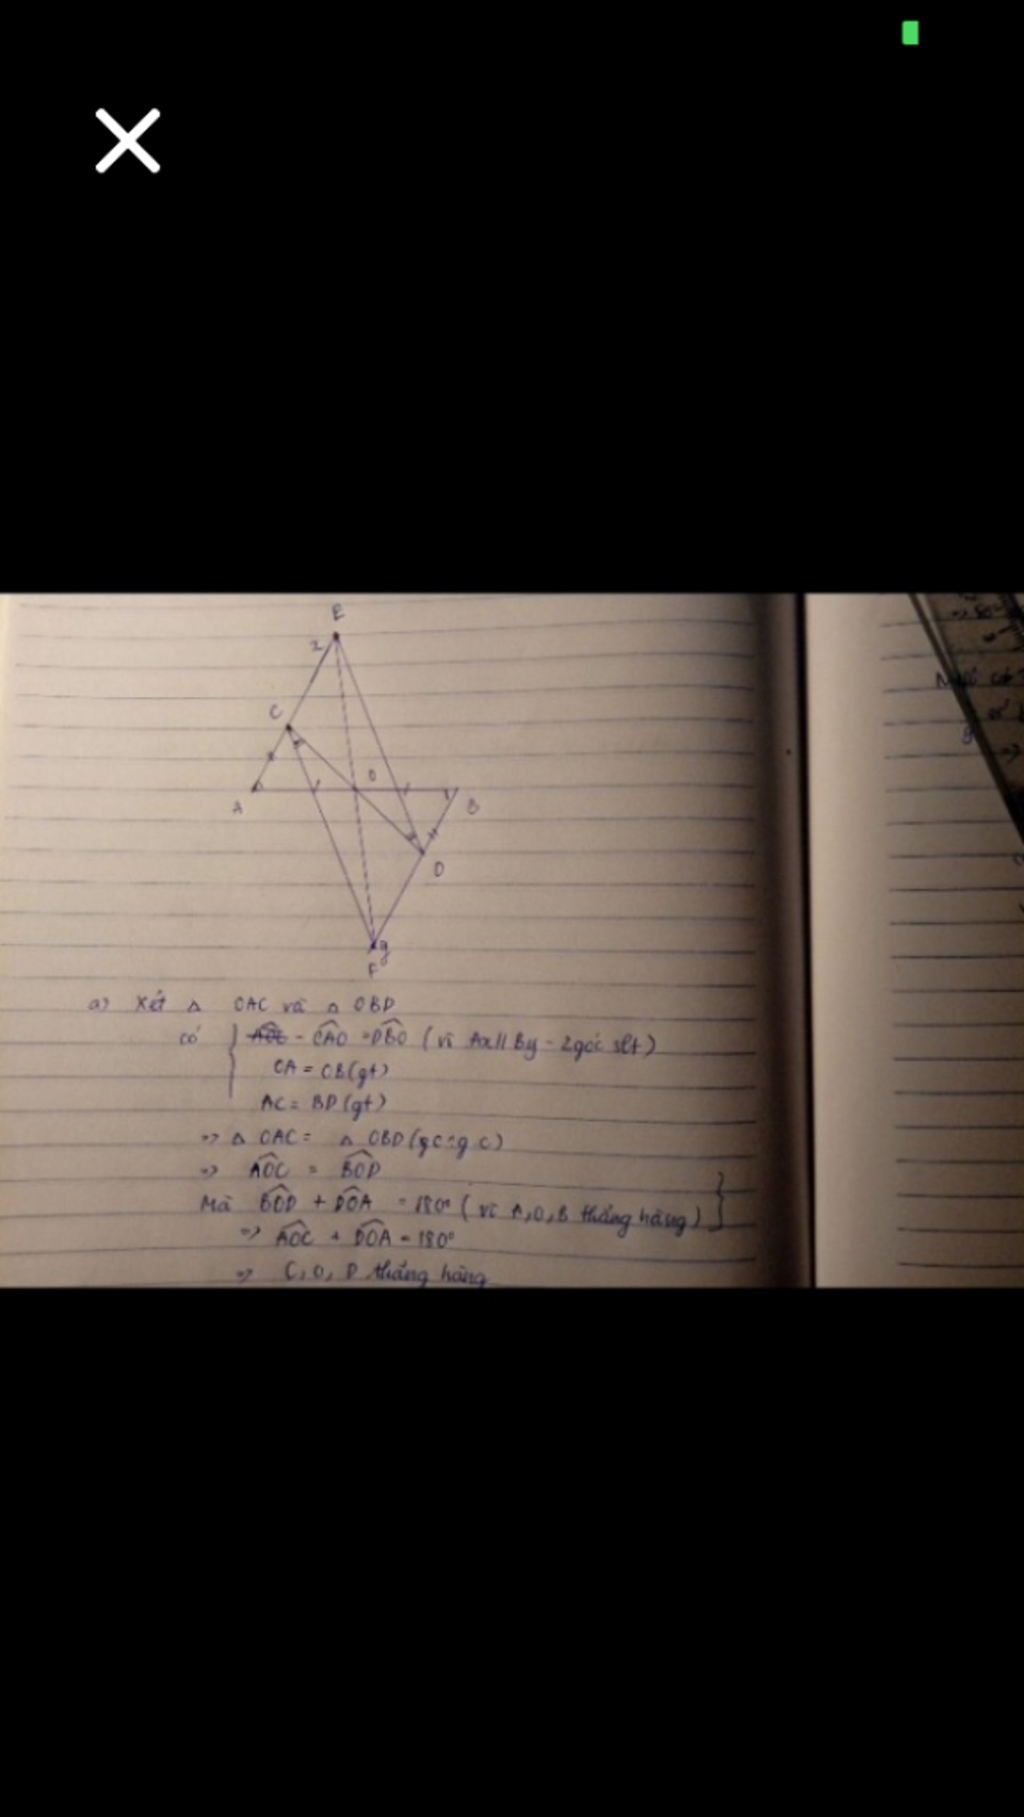 E
C
O
A
B
D
y
F
a) Xét △ OAC và △ OBD
có - CAO = DBO ( vì Ax // By - 2 góc slt )
OA = OB (gt)
AC = BD (gt)
=> △ OAC = △ OBD ( g.c)
=> AOC = BOD
Mà BOD + DOA = 180° ( vì A, O, B thẳng hàng )
=> AOC + DOA = 180°
=> C, O, D thẳng hàng